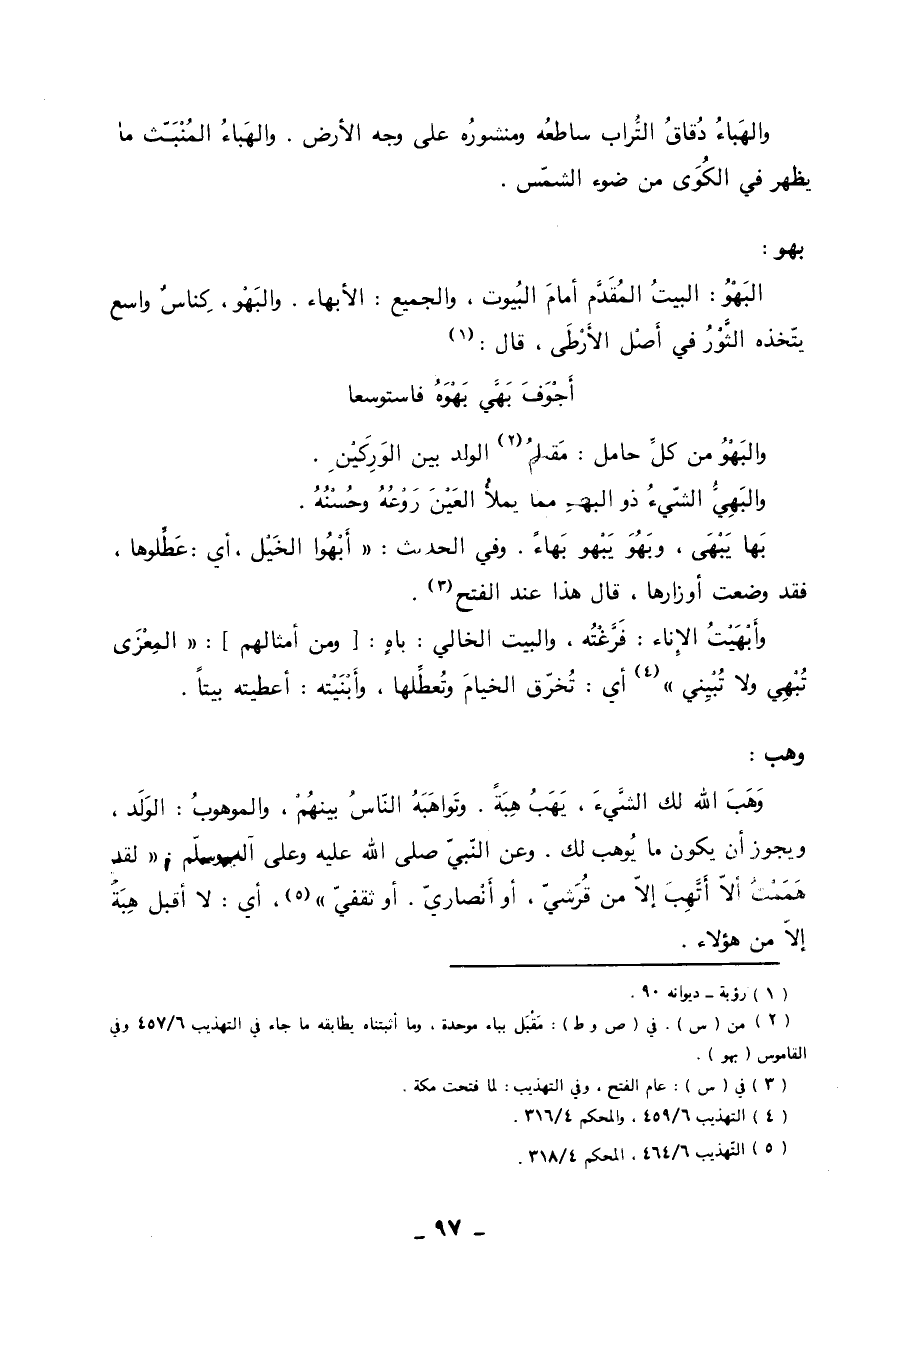 والهَباءُ دُقاقُ التُّراب ساطعُه ومنشورُه على وجه الأرض . والهَباءُ المُنْبَـثّ ما
يظهر في الكُوَى من ضوء الشمّس .
بهو :
البَهْوُ : البيتُ المُقَدَّم أمامَ البُيوت ، والجميع : الأبهاء . والبَهْو ، كِناسٌ واسع
يتّخذه الثَّوْرُ في أصْل الأَرْطَى ، قال : (١)
أَجْوَفَ بَهَّي بَهْوَهُ فاستوسعا
والبَهْوُ من كلِّ حامل : مَقْـلمُ (٢) الولد بين الوَرِكَيْن .
والبَهِيُّ الشيّءُ ذو البهـ مما يملأُ العَيْنَ رَوْعُهُ وحُسْنُهُ .
بَها يَبْهَى ، وبَهُوَ يَبْهو بَهاءً . وفي الحديث : « أَبْهُوا الخَيْل ، أي : عَطِّلوها ،
فقد وضعت أوزارها ، قال هذا عند الفتح (٣) .
وأَبْهَيْتُ الإناء : فَرَّغْتُه ، والبيت الخالي : باهٍ : [ ومن أمثالهم ] : « المِعْزَى
تُبْهِي ولا تُبْنِي » (٤) أي : تُخرّق الخيامَ وتُعطِّلها ، وأَبْنَيْته : أعطيته بيتاً .
وهب :
وَهَبَ الله لك الشيَّءَ ، يَهَبُ هِبَةً . وتَواهَبَهُ النّاسُ بينهُمْ ، والموهوبُ : الوَلَد ،
ويجوز أن يكون ما يُوهب لك . وعن النّبيّ صلى الله عليه وعلى آله وسلّم : « لقد
هَمَمْتُ ألاّ أَتَّهِبَ إلاّ من قُرَشيّ ، أو أَنْصاريّ . أو ثقفيّ » (٥) ، أي : لا أقبل هِبَةً
إلاّ من هؤلاء .
( ١ ) رؤبة ـ ديوانه ٩٠ .
( ٢ ) من ( س ) . في ( ص و ط ) : مَقْبَل بباء موحدة ، وما أثبتناه يطابقه ما جاء في التهذيب ٤٥٧/٦ وفي
القاموس ( بهو ) .
( ٣ ) في ( س ) : عام الفتح ، وفي التهذيب : لما فتحت مكة .
( ٤ ) التهذيب ٤٥٩/٦ ، والمحكم ٣١٦/٤ .
( ٥ ) التّهذيب ٤٦٤/٦ ، المحكم ٣١٨/٤ .
ـ ٩٧ ـ